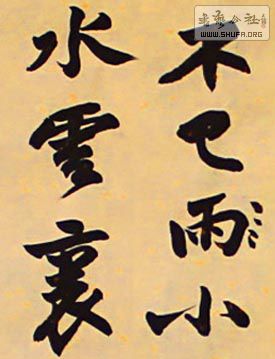 不已雨小
水雲裏
書藝公社
WWW.SHUFA.ORG